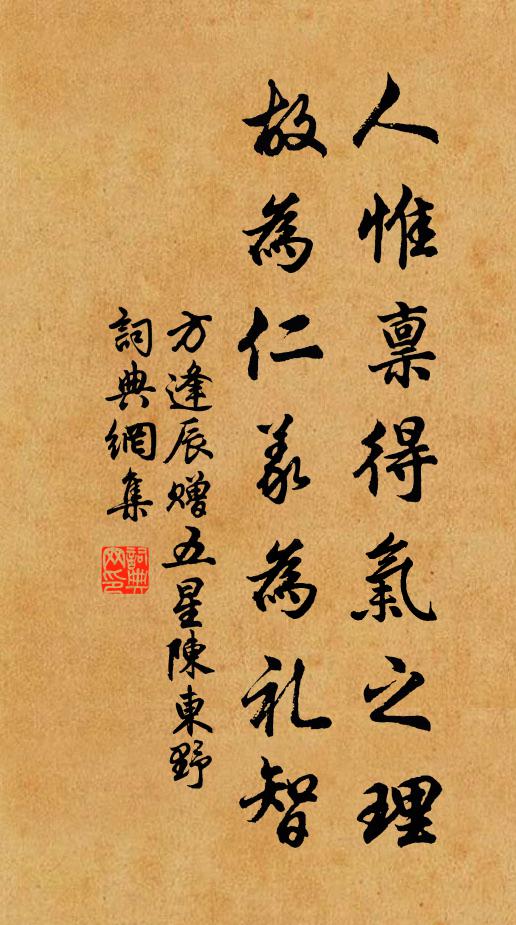 人惟禀得氣之理
故為仁義為礼智
方逢辰赠五星陳東野
詞典網集
詞典網印